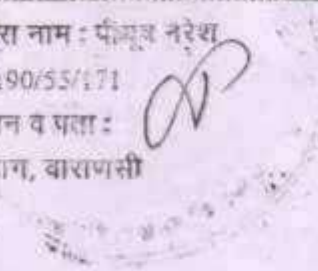 रा नाम : पीयूष नरेश
190/55/171
न व पता :
ाग, वाराणसी